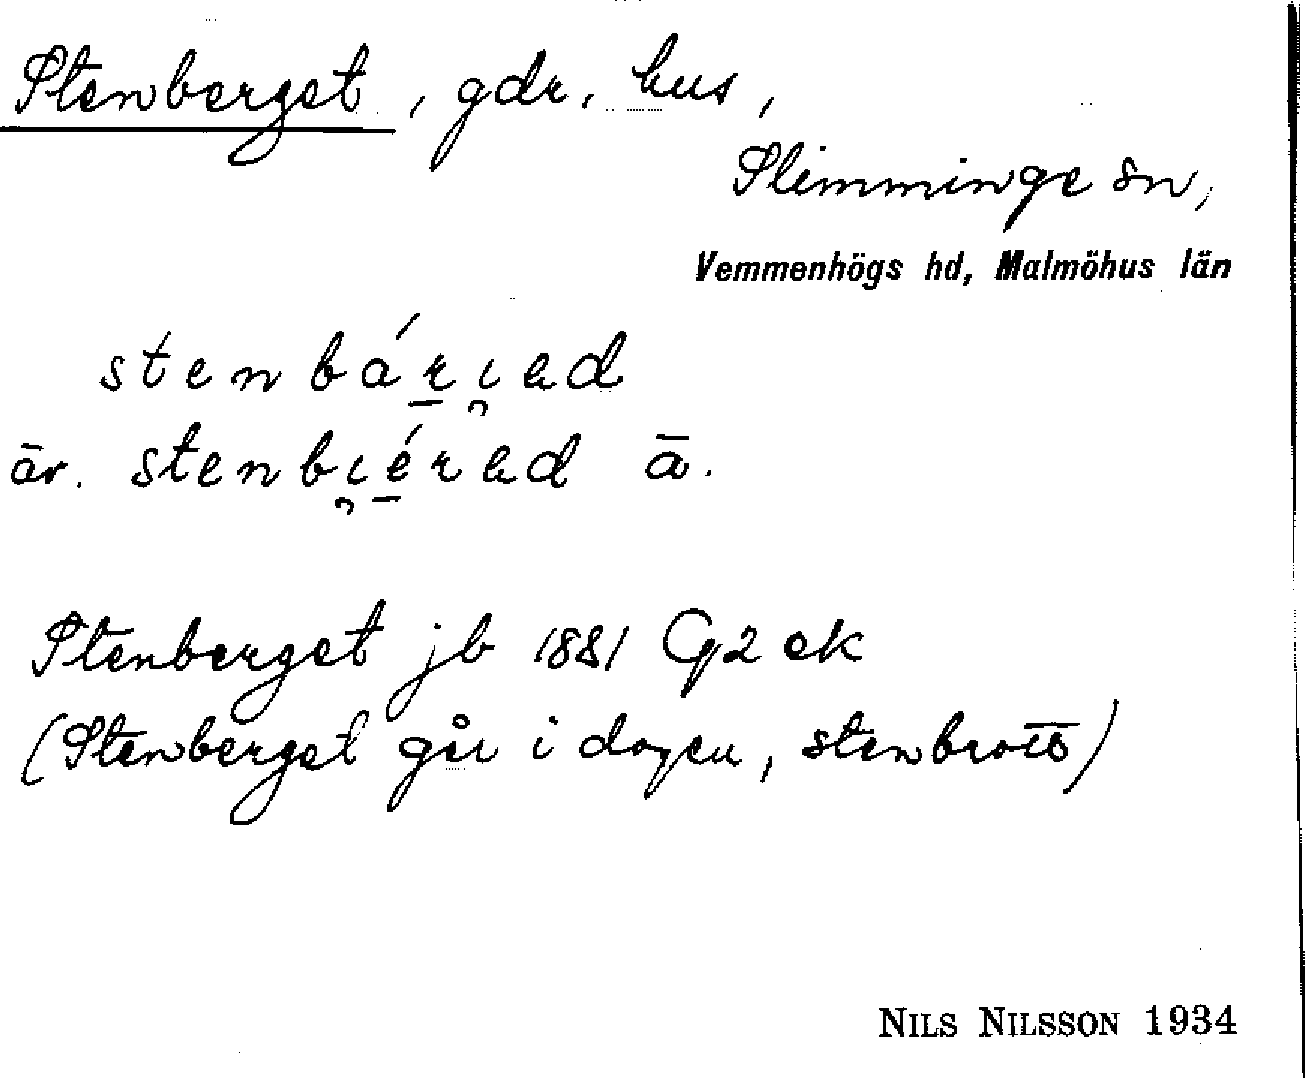 Stenberget, gdr, hus,
Slimminge sn,
Vemmenhögs hd, Malmöhus län
stenbá̱rı̯ad
äv. stenbı̯é̱rad ā.
Stenberget jb 1881 G2 ek
(Stenberget går i dagen, stenbrott)
NILS NILSSON 1934